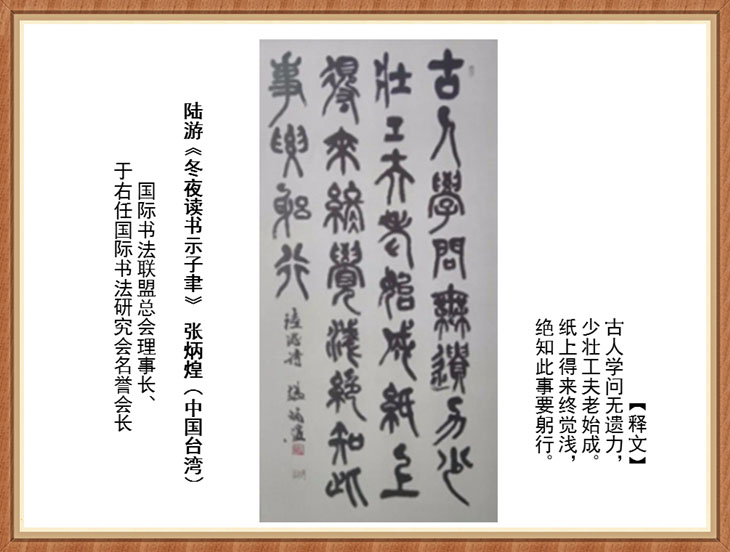 【释文】
古人学问无遗力，
少壮工夫老始成。
纸上得来终觉浅，
绝知此事要躬行。
古人學問無遺力少
壯工夫老始成紙上
得來終覺淺絕知此
事要躬行 陸游詩 張炳煌
陆游《冬夜读书示子聿》 张炳煌（中国台湾）
国际书法联盟总会理事长、
于右任国际书法研究会名誉会长